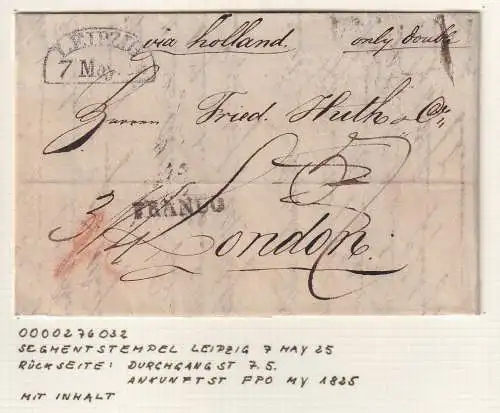 LEIPZIG
7 May.
via holland. only double
Herren Fried. Huth & Co.
FRANCO
London.
0000276032
SEGMENTSTEMPEL LEIPZIG 7 MAY 25
RÜCKSEITE: DURCHGANGST 7.5.
ANKUNFTST FPO MY 1825
MIT INHALT